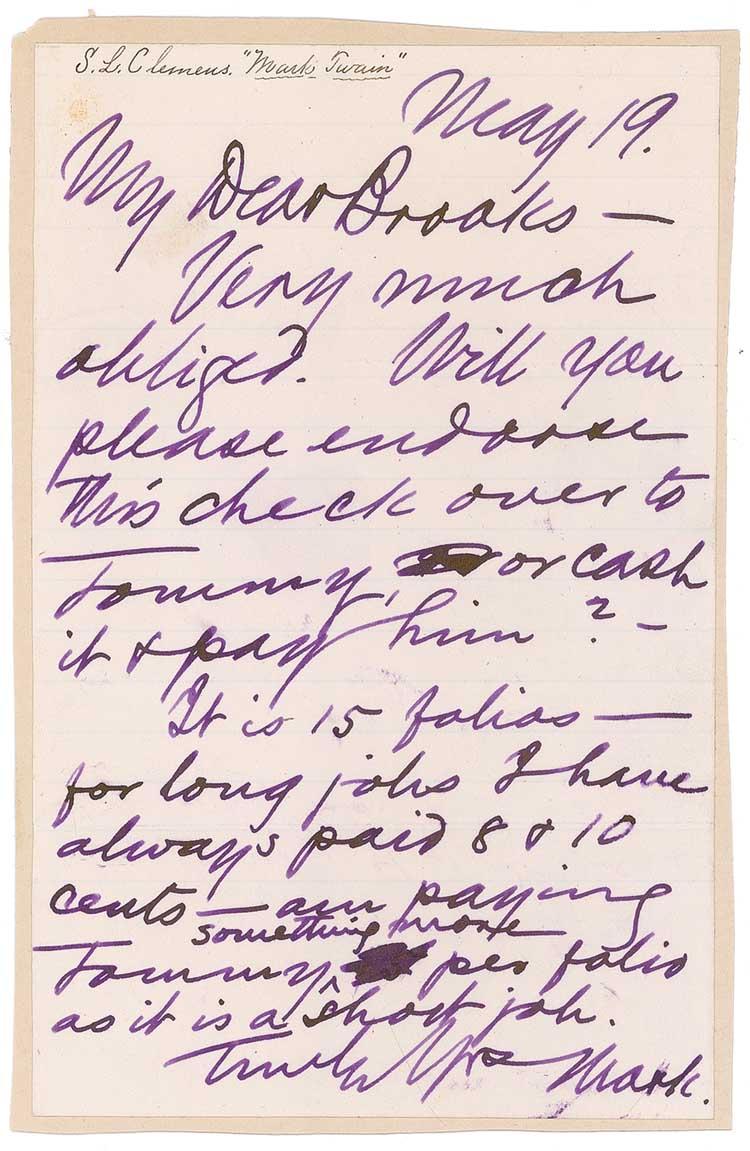 S. L. Clemens. "Mark Twain"
May 19.
My Dear Brooks —
Very much
obliged. Will you
please endorse
this check over to
Tommy, or cash
it & pay him? —
It is 15 folios —
for long jobs I have
always paid 8 & 10
cents — am paying
something more
Tommy ^ per folio
as it is a short job.
Truly Yrs
Mark.